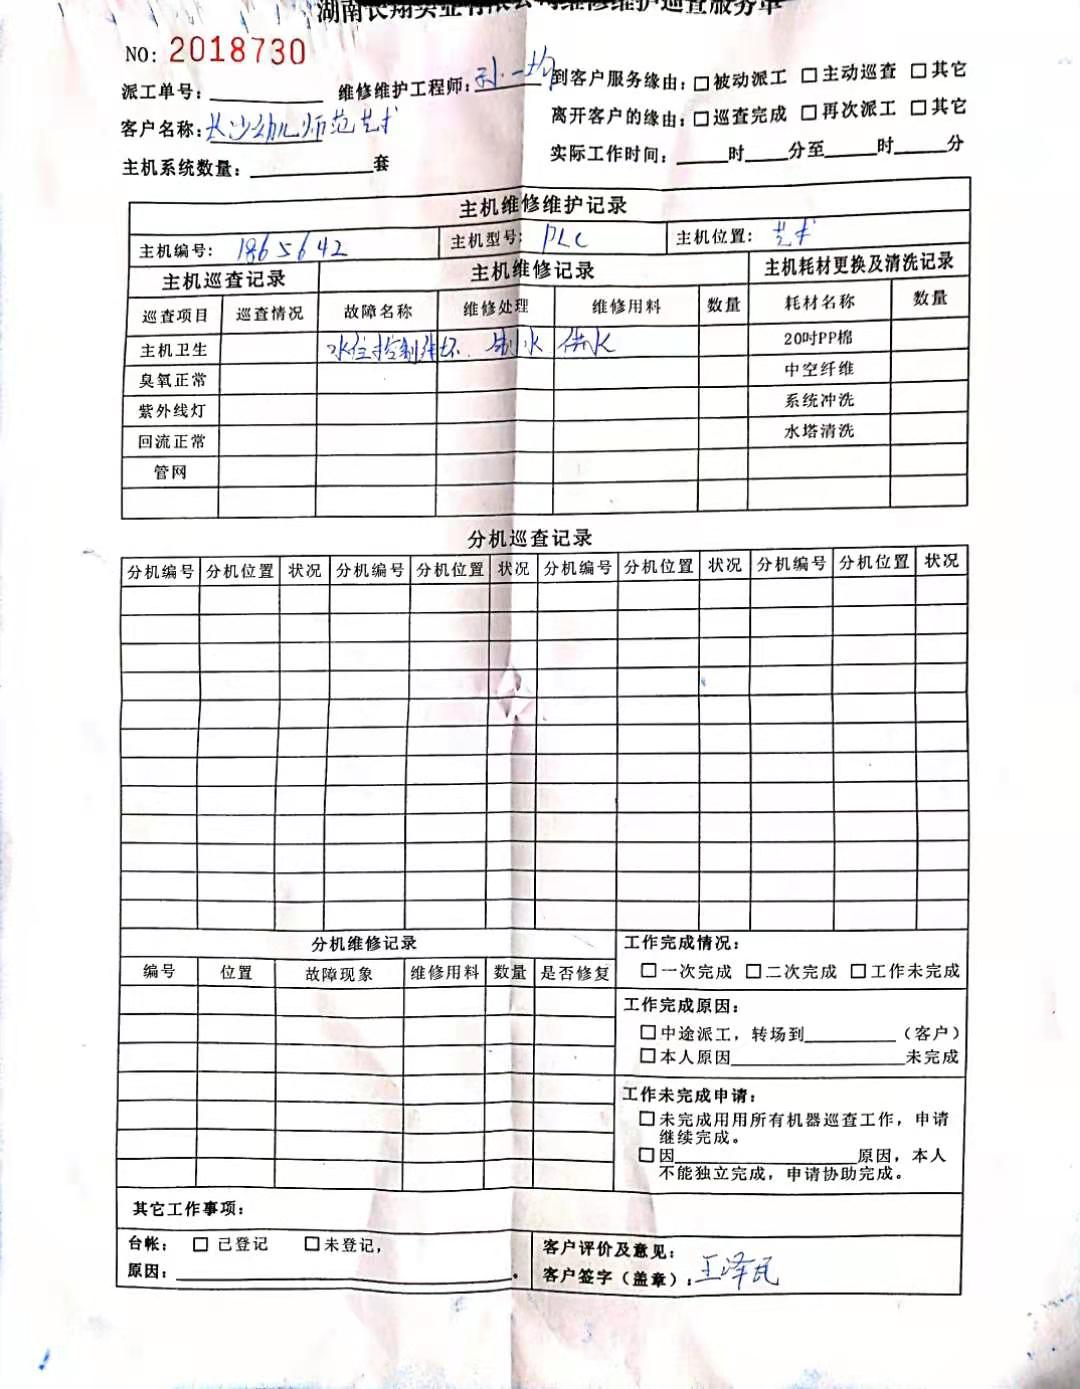 湖南长翔实业有限公司维修维护巡查服务单
NO: 2018730
派工单号: 维修维护工程师: 孙一均 到客户服务缘由: □被动派工 □主动巡查 □其它
客户名称: 长沙幼儿师范艺术 离开客户的缘由: □巡查完成 □再次派工 □其它
主机系统数量: 套 实际工作时间: 时 分至 时 分
主机维修维护记录
主机编号: 1865642 主机型号: PLC 主机位置: 艺术
主机巡查记录 主机维修记录 主机耗材更换及清洗记录
巡查项目 巡查情况 故障名称 维修处理 维修用料 数量 耗材名称 数量
主机卫生 水位控制 坏. 制水 供水 20吋PP棉
臭氧正常 中空纤维
紫外线灯 系统冲洗
回流正常 水塔清洗
管网
分机巡查记录
分机编号 分机位置 状况 分机编号 分机位置 状况 分机编号 分机位置 状况 分机编号 分机位置 状况
分机维修记录 工作完成情况:
编号 位置 故障现象 维修用料 数量 是否修复 □一次完成 □二次完成 □工作未完成
工作完成原因:
□中途派工, 转场到 (客户)
□本人原因 未完成
工作未完成申请:
□未完成用用所有机器巡查工作, 申请
继续完成。
□因 原因, 本人
不能独立完成, 申请协助完成。
其它工作事项:
台帐: □ 已登记 □未登记, 客户评价及意见:
原因: 。 客户签字(盖章): 王泽民